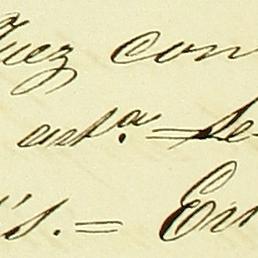 Juez con
asta.=Se
s.= En